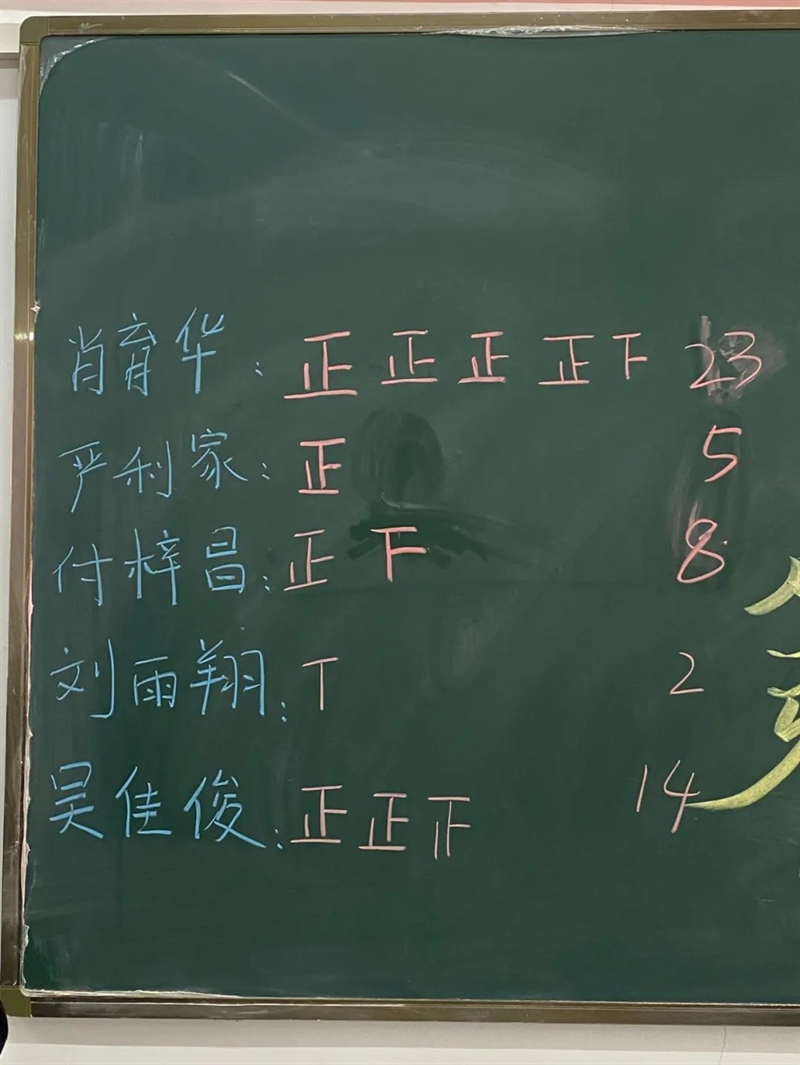 肖育华：正正正正下 23
严利家：正 5
付梓昌：正下 8
刘雨翔：丅 2
吴佳俊：正正𣥂 14